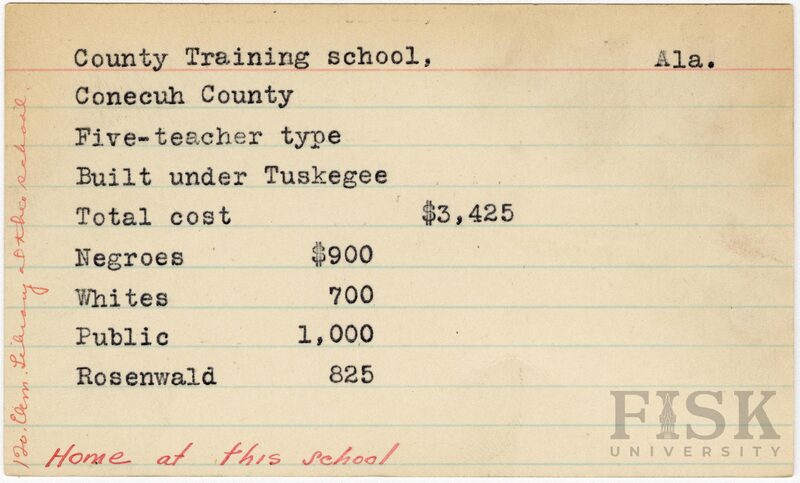 County Training school, Ala.
Conecuh County
Five-teacher type
Built under Tuskegee
Total cost $3,425
Negroes $900
Whites 700
Public 1,000
Rosenwald 825
Home at this school
120. Elem. Library at this school.
FISK
UNIVERSITY